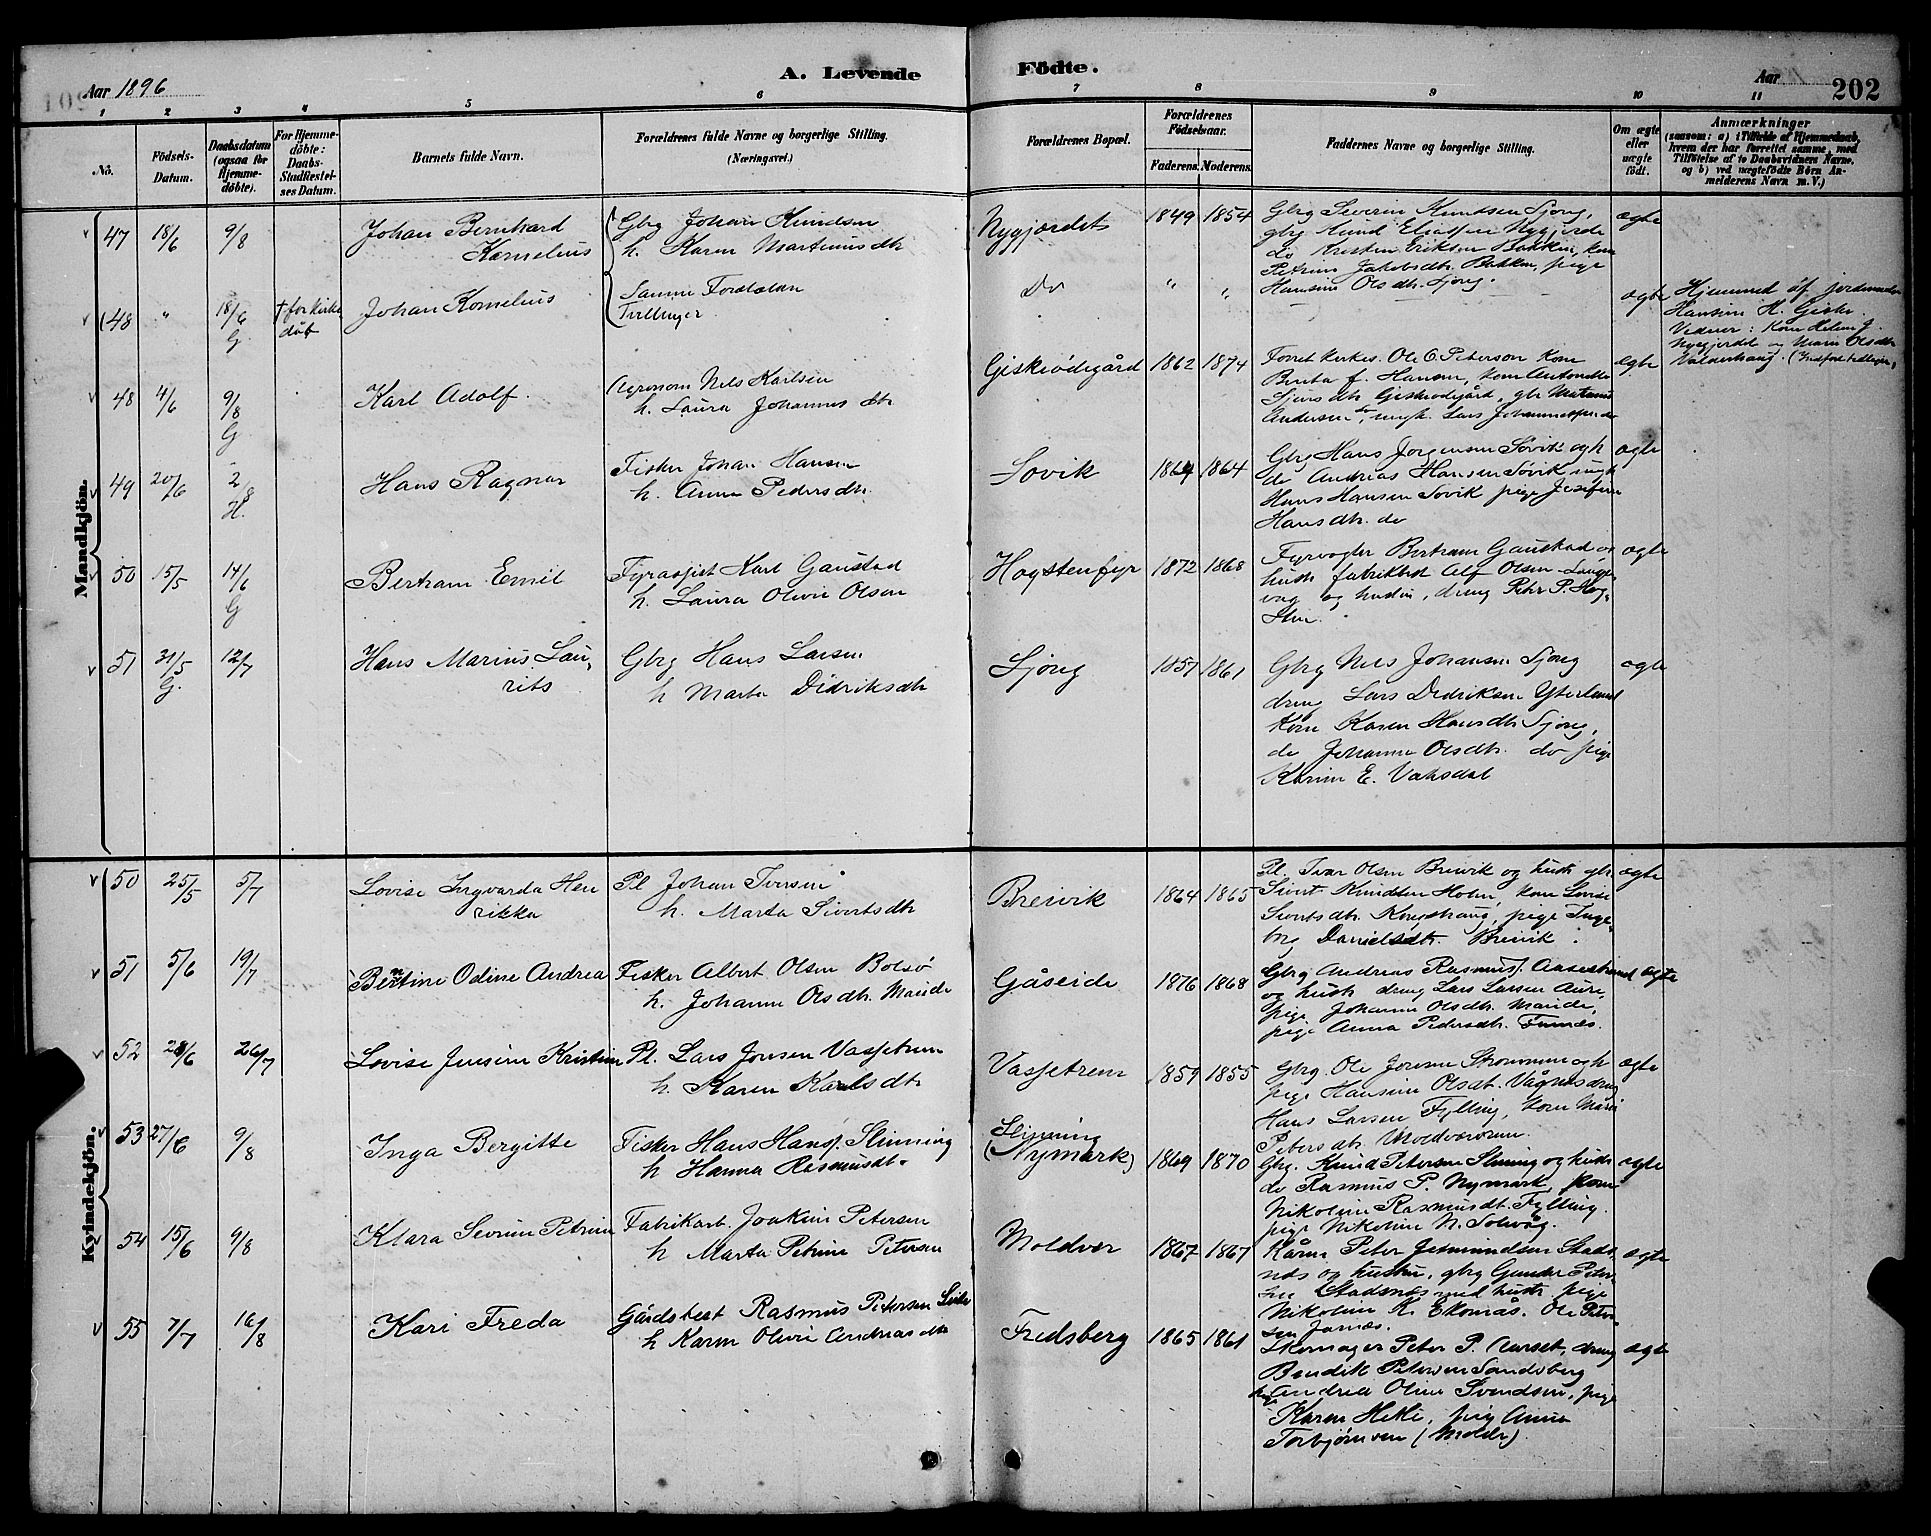 Aar 1896
A. Levende
Födte.
Aar
202
1 2 3 4 5 6 7 8 9 10 11
No.
Födsels-
Datum.
Daabsdatum
(ogsaa for
Hjemme-
döbte).
For Hjemme-
döbte:
Daabs-
Stadfæstel-
ses Datum.
Barnets fulde Navn.
Forældrenes fulde Navne og borgerlige Stilling.
(Næringsvei.)
Forældrenes Bopæl.
Forældrenes
Födselsaar.
Faderens. Moderens.
Faddernes Navne og borgerlige Stilling.
Om ægte
eller
uægte
födt.
Anmærkninger
(saasom: a) i Tilfælde af Hjemmedaab,
hvem der har forrettet samme, med
Tilföielse af to Daabsvidners Navne,
og b) ved uægtefödte Börn An-
melderens Navn m. V.)
Mandkjön.
47 18/6 9/8
Johan Bernhard
Kornelius
Gbrg Johan Knudsen
h. Karen Martinusdtr
Nygjærdet 1849 1854
Gbrg Severin Knudsen Sjong,
gbrg Amund Eliassen Nygjærde
do Kristen Eriksen Bakken, kone
Petrine Jakobsdtr. Bakken, pige
Hansine Olsdtr. Sjong.
ægte
(48 " 18/6 G.
† for kirke
döb
Johan Kornelius
Samme Forældre
Tvillinger
Do " " ægte
Hjemmed af jordemoder
Hansine H. Giske.
Vidner: Kone Helene J.
Nygjerdet og Maren Olsdtr
Valderhaug. (Indført tidligere)
48 4/6 9/8 G
Karl Adolf.
Agronom Nils Karlsen
h. Laura Johannesdtr
Giskeødegård 1862 1874
Forret kirkes. Ole O. Peterson kone
Berta f. Hansen, kone Antonette
Sjursdtr Giskeødegård, gbr Matias
Andersen do, ungk. Lars Johannessen do
ægte
49 20/6 2/8 H.
Hans Ragnar
Fisker Johan Hansen
h. Anne Pedersdtr.
Sovik 1864 1864
Gbrg Hans Jorgensen Søvik og h
do Andreas Hansen Søvik ungk
Hans Hansen Søvik pige Josefine
Hansdtr. do
ægte
50 15/5 14/6 G
Bertram Emil
Fyrassist Karl Gaustad
h. Laura Olivie Olsen
Hogstenfyr 1872 1868
Fyrvogter Bertram Gaustad og
hustr. fabrikbest Alf Olsen Lange-
våg og hustru, dreng Petr P. Hog-
sten.
ægte
51 31/5 G. 12/7
Hans Marius Lau-
rits
Gbrg Hans Larsen
h Marta Didriksdtr
Sjong 1857 1861
Gbrg Nils Johansen Sjong
dreng Lars Didriksen Ytterland
kone Karen Hansdtr Sjong,
do Johanne Olsdtr. do pige
Karine E. Vaksdal
ægte
Kvindekjön.
50 25/5 5/7
Lovise Ingvarda Hen
rikka
Pl Johan Iversen
h. Marta Sivertsdtr
Breivik 1864 1865
Pl. Ivar Olsen Breivik og hustr gbr
Sivert Knudsen Holen, kone Lovise
Sivertsdtr. Kongshaug, pige Inge-
borg Danielsdtr. Breivik.
ægte
51 5/6 19/7
Berntine Odine Andrea
Fisker Albert Olsen Bolsø
h. Johanne Olsdtr. Mande
Gåseide 1876 1868
Gbrg Andreas Rasmuss. Aasestrand
og hustr dreng Lars Larsen Aure,
pige Johanne Olsdtr. Mande,
pige Anna Pedersdtr. Furnæs.
ægte
52 28/6 26/7
Lovise Jensine Kristine
Pl. Lars Jonsen Vasstrem
h. Karen Karlsdtr
Vasstrem 1859 1855
Gbrg. Ole Jonsen Strømmen og h
pige Hansine Olsdt. Vågnes dreng
Hans Larsen Fylling, kone Mari
Petersdtr. Moldværværen.
ægte
53 27/6 9/8
Inga Bergitte
Fisker Hans Hanss. Slinning
h Hanna Rasmusdt.
Slinning
(Nymark) 1869 1870
Gbrg. Knud Petersen Slinning og hustr
do Rasmus P. Nymark, kone
Nikoline Rasmusdt. Fylling.
pige Nikoline N. Solevåg.
ægte
54 15/6 9/8
Klara Severine Petrine
Fabrikarb. Joakim Petersen
h Marta Petrine Petersen
Moldvær 1867 1867
Kårm. Peter Jetmundsen Stads-
næs og hustru, gbrg Gunder Peter-
sen Stadsnæs med hustr, pige
Nikoline K. Ekornæs. Ole Peter-
sen
ægte
55 7/7 16/8
Kari Freda
Gårdsbest Rasmus Petersen
h Karen Olivie Andreasdtr
Fredsberg 1865 1861
Skomager Peter P. Aurset, dreng
Bendik Petersen Sandsberg
Andrea Oline Svendsen, pige
Karen Hetle, pig Anna
Torbjørnsen (Molde)
ægte